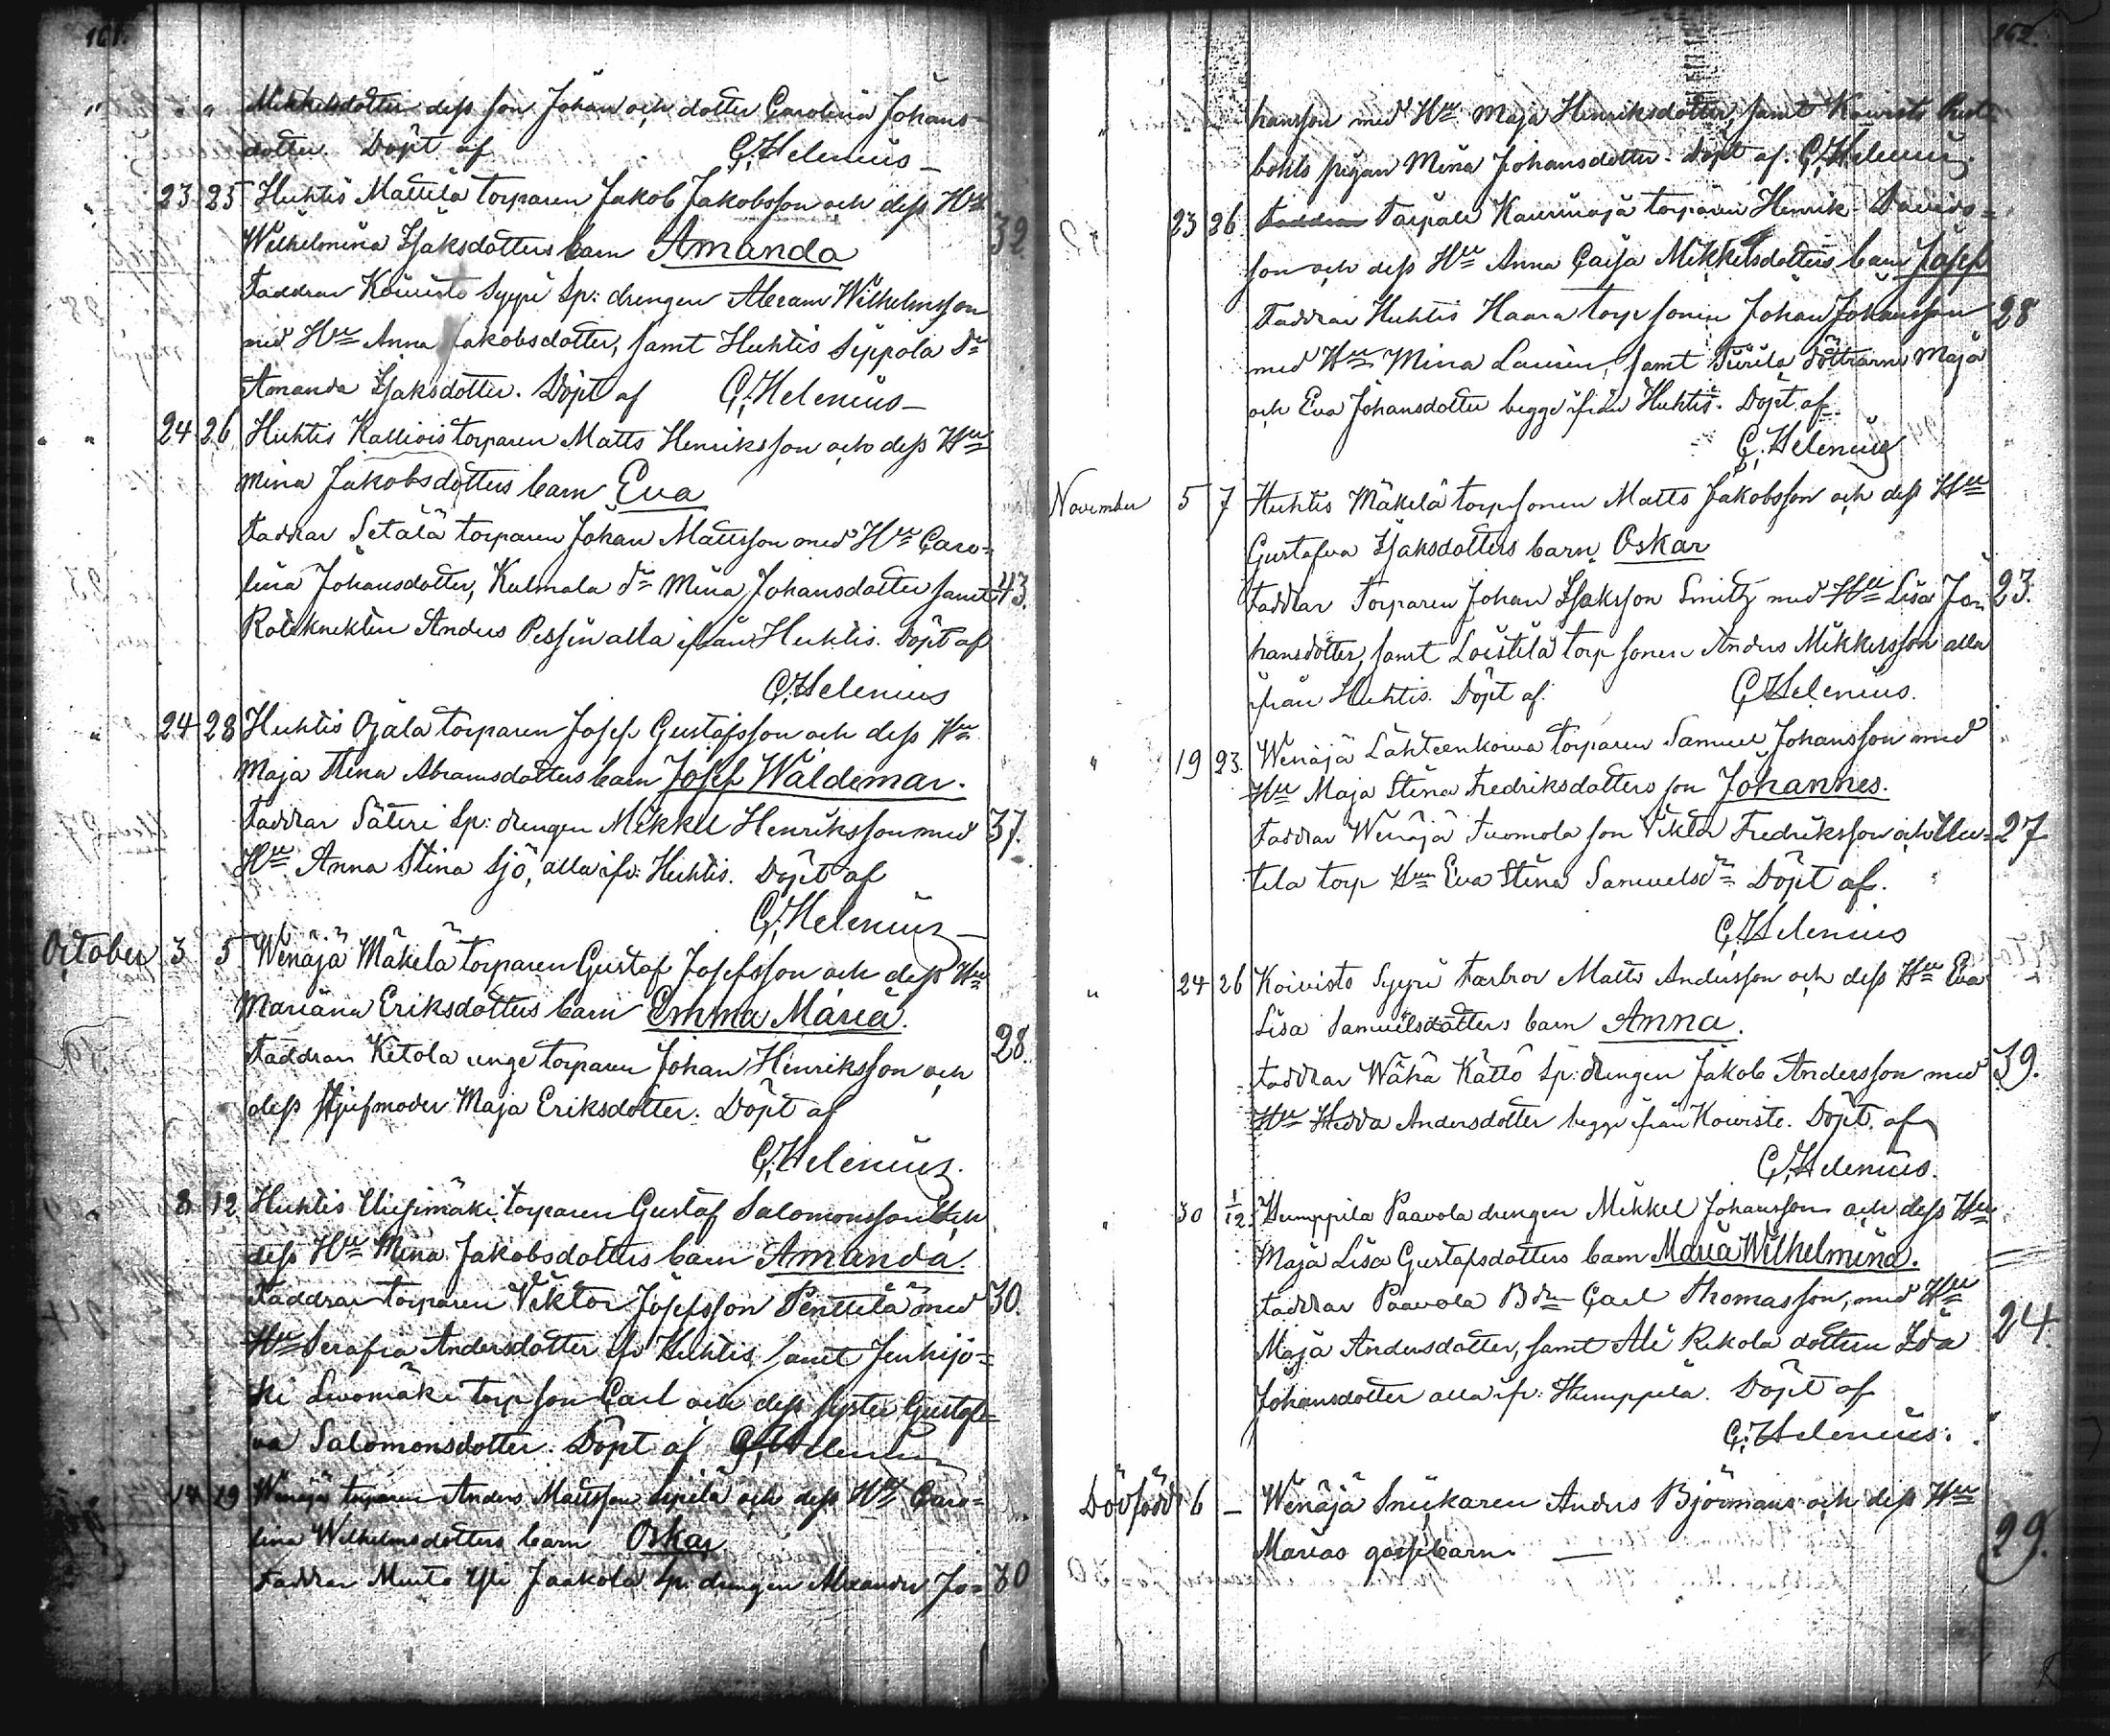 161.
" " Mikkelsdotter dess son Johan och dotter Carolina Johans-
dotter. Döpt af C. Helenius
" 23 25 Huhtis Mattila torparen Jakob Jakobsson och dess Hu
Wilhelmina Isaksdotters barn Amanda 32
Faddrar Koivisto Syyri Sp: drengen Abram Wilhelmsson
med Hu Anna Jakobsdotter, samt Huhtis Seppola dr
Amanda Isaksdotter. Döpt af C. Helenius
" " 24 26 Huhtis Kalliois torparen Matts Henriksson och dess Hu
Mina Jakobsdotters barn Eva
Faddrar Setälä torparen Johan Mattsson med Hu Caro-
lina Johansdotter, Kulmala dr Mina Johansdotter samt 43.
Roteknekten Anders Pessin alla ifrån Huhtis. Döpt af
C. Helenius
" 24 28 Huhtis Ojala torparen Josef Gustafsson och dess Hu
Maja Stina Abramsdotters barn Josef Waldemar.
Faddrar Säteri Sp: drengen Mikkel Henriksson med 37.
Hu Anna Stina Sjö, alla ifr: Huhtis. Döpt af
C. Helenius
October 3 5 Wenäjä Mäkelä torparen Gustaf Josefsson och dess Hu
Mariana Eriksdotters barn Emma Maria.
Faddrar Kitola unge torparen Johan Henriksson och 28.
dess Stjufmoder Maja Eriksdotter. Döpt af
C. Helenius.
" 8 12 Huhtis Uusimäki torparen Gustaf Salomonsson och
dess Hu Mina Jakobsdotters barn Amanda.
Faddrar torparen Viktor Josefsson Penttilä med 30.
Hu Serafia Andersdotter ifr Huhtis samt Jenhijo-
ki torp son Carl och dess syster Gustaf-
va Salomonsdotter. Döpt af C. Helenius
14 19 Wenäjä torparen Anders Mattsson Sipilä och dess Hu Caro-
lina Wilhelmsdotters barn Oskar.
Faddrar Murto Yli Jaakola Sp: drengen Alexander Jo- 30
162.
" hansson med Hu Maja Henriksdotter, samt Koivisto Rust-
hohls pigan Mina Johansdotter. Döpt af. C. Helenius
23 26 Faddrar Taipale Kaurinoja torparen Henrik Davids-
son och dess Hu Anna Caisa Mikkelsdotters barn Josef
Faddrar Huhtis Haara torp sonen Johan Johansson 28
med Hu Mina Laurin, samt Tuirila döttrarne Maja
och Eva Johansdotter begge ifrån Huhtis. Döpt af.
C. Helenius
November 5 7 Huhtis Mäkelä torpsonen Matts Jakobsson och dess Hu
Gustafva Isaksdotters barn Oskar
Faddrar Torparen Johan Isaksson Smitz med Hu Lisa Jo- 23.
hansdotter, samt Loistila torp sonen Anders Mikkelsson alla
ifrån Huhtis. Döpt af. C. Helenius.
" 19 23. Wenäjä Lähteenkorva torparen Samuel Johansson med
Hu Maja Stina Fredriksdotters son Johannes.
Faddrar Wenäjä Tuomola son Viktor Fredriksson och Uu- 27
tela torp Hu Eva Stina Samuelsdr. Döpt af.
C. Helenius
" 24 26 Koivisto Syyri Farbror Matts Andersson och dess Hu Eva
Lisa Samuelsdotters barn Anna.
Faddrar Wähä Kättö Sp: drengen Jakob Andersson med 39.
Hu Hedda Andersdotter begge ifrån Koivisto. Döpt af
C. Helenius.
" 30 1/12 Humppila Paavola drengen Mikkel Johansson och dess Hu
Maja Lisa Gustafsdotters barn Maria Wilhelmina.
Faddrar Paavola Bdn Carl Thomasson, med Hu
Maja Andersdotter, samt Ali Rekola dottren Ida 24.
Johansdotter alla ifr: Humppila. Döpt af
C. Helenius.
Dödfödd 6 — Wenäjä Snickaren Anders Björmans och dess Hu
Marias gossebarn — 29.